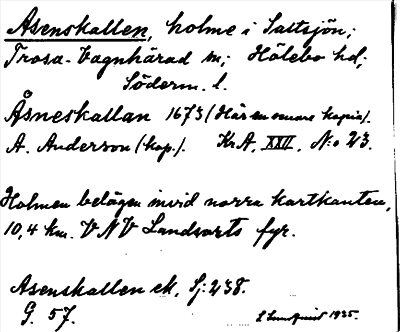 Asenskallen, holme i Saltsjön;
Trosa-Vagnhärad sn; Hölebo hd;
Söderm. l.
Åsneskallan 1673 (Här en senare kopia).
A. Anderson (kop.). KrA, XXII, N:o 23.
Holmen belägen invid norra kartkanten,
10,4 km. VNV Landsorts fyr.
Asenskallen ek. Sj: 238.
G. 57. 1935.